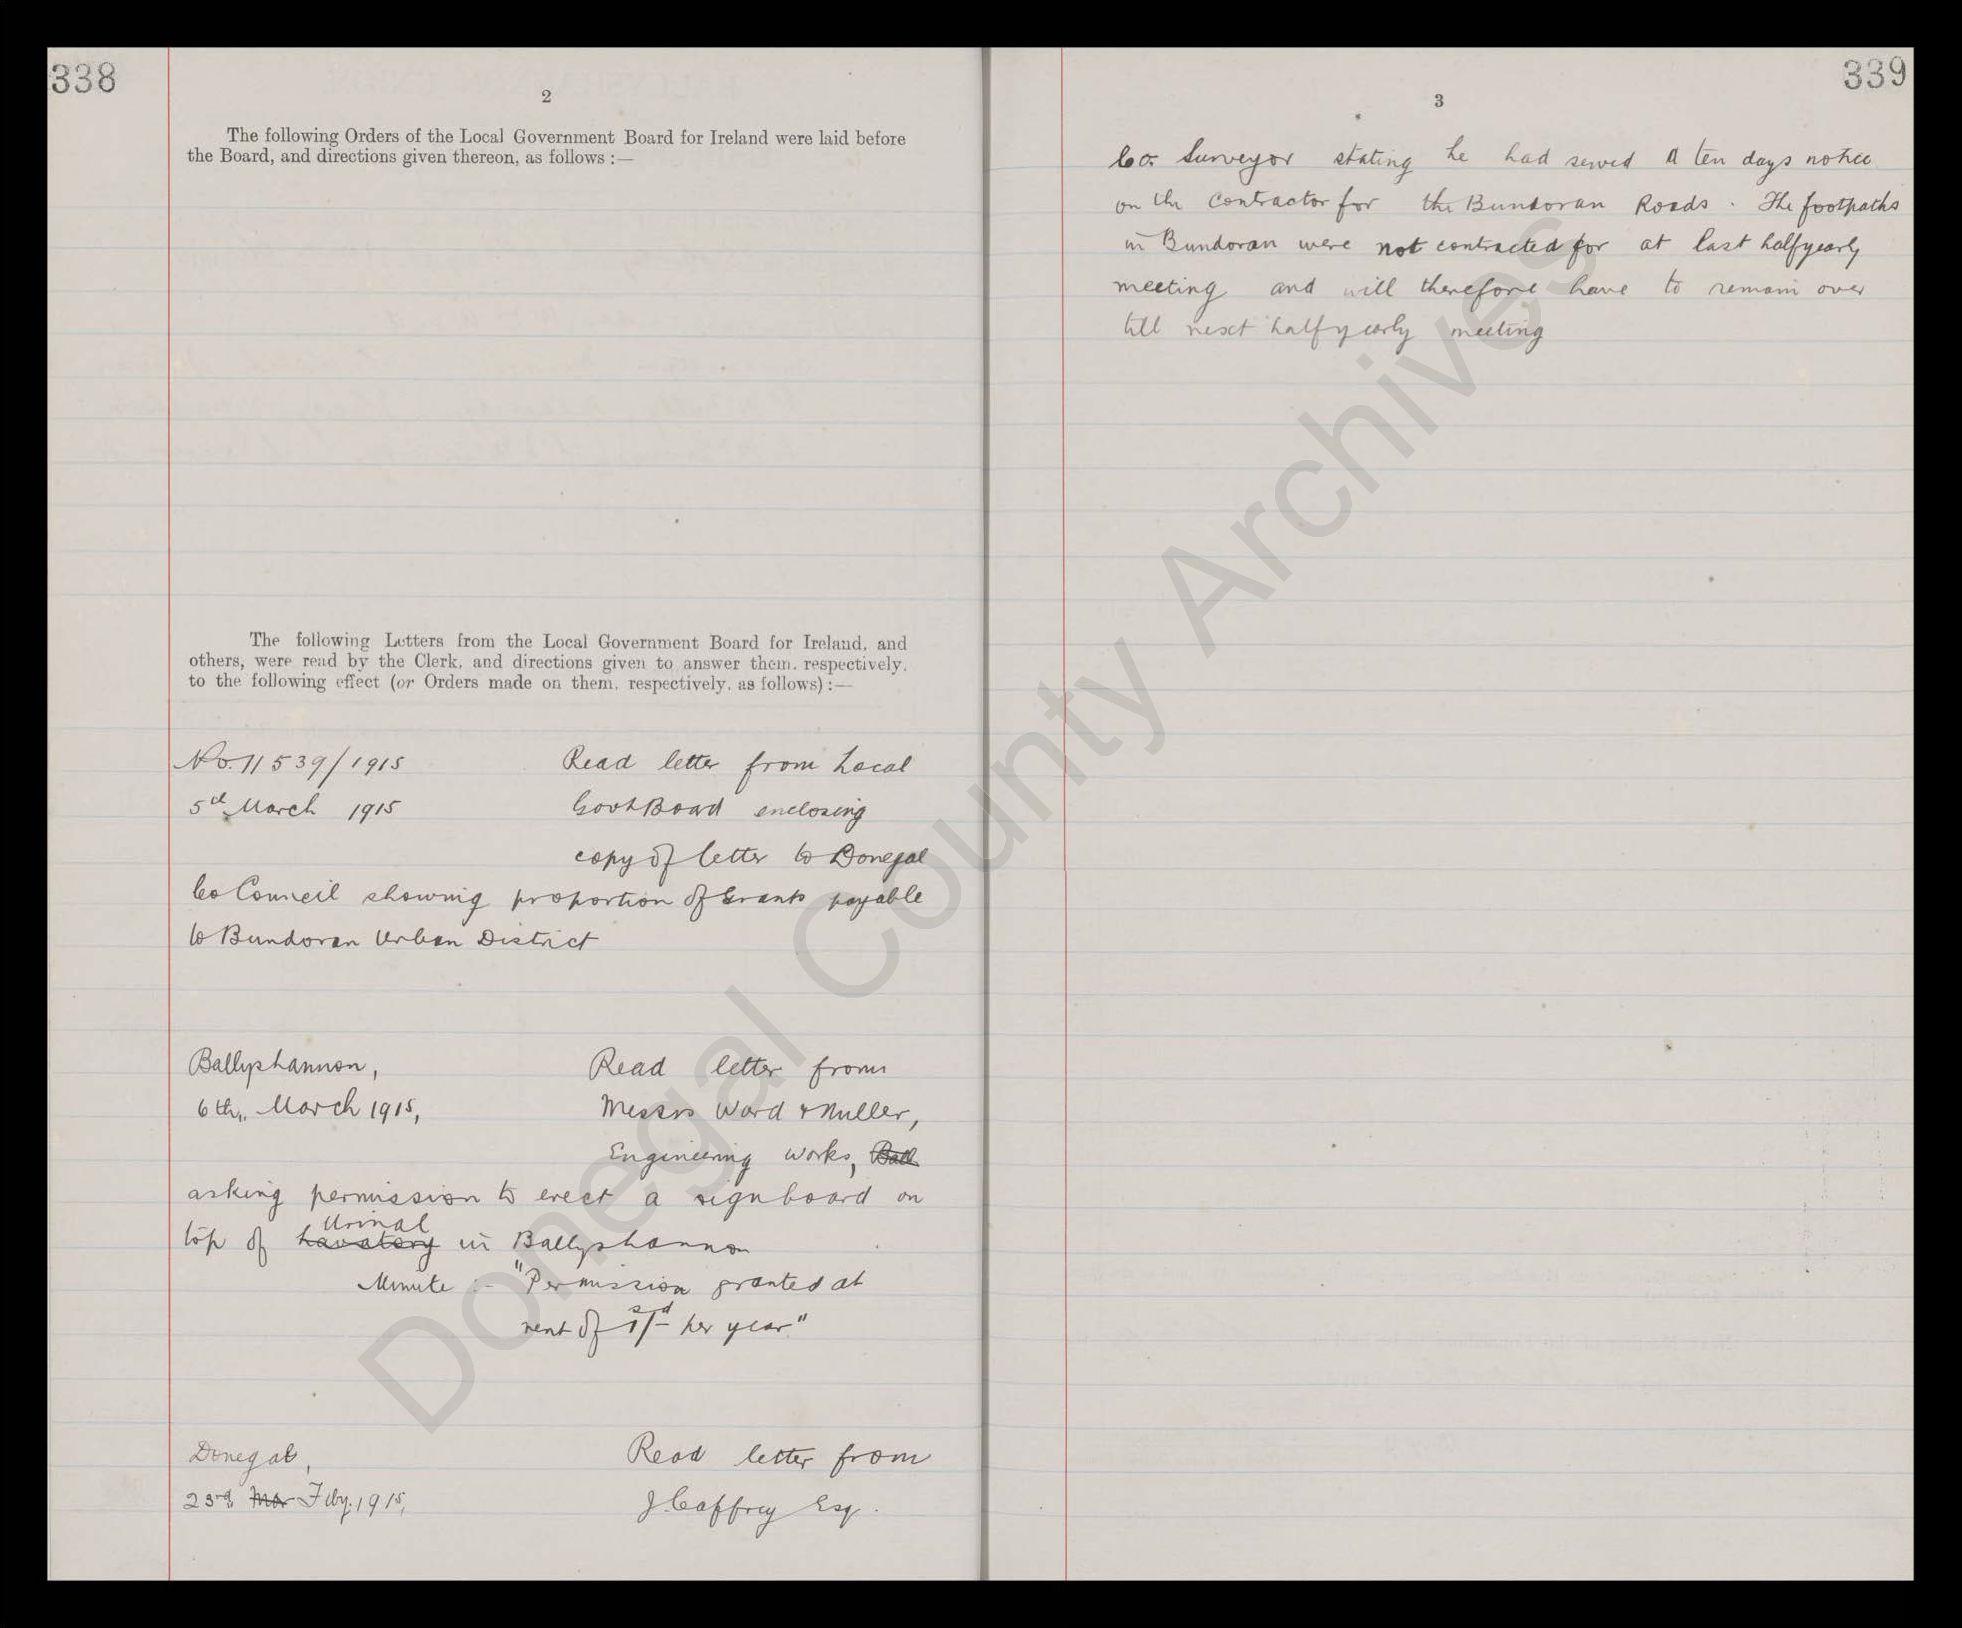 338
2
The following Orders of the Local Government Board for Ireland were laid before
the Board, and directions given thereon, as follows :—
The following Letters from the Local Government Board for Ireland, and
others, were read by the Clerk, and directions given to answer them, respectively,
to the following effect (or Orders made on them, respectively, as follows) :—
No. 11539/1915 Read letter from Local
5th March 1915 Govt Board enclosing
copy of letter to Donegal
Co Council showing proportion of Grants payable
to Bundoran Urban District
Ballyshannon, Read letter from
6th, March 1915, Messrs Ward & Muller,
Engineering works, Ball
asking permission to erect a signboard on
Urinal
top of Lavatory in Ballyshannon
Minute :- "Permission granted at
rent of per year"
Donegal, Read letter from
23rd, Mar Feby. 1915, J Caffrey Esq.
339
3
Co. Surveyor stating he had served a ten days notice
on the contractor for the Bundoran Roads. The footpaths
in Bundoran were not contracted for at last halfyearly
meeting and will therefore have to remain over
till next halfyearly meeting
Donegal County Archives